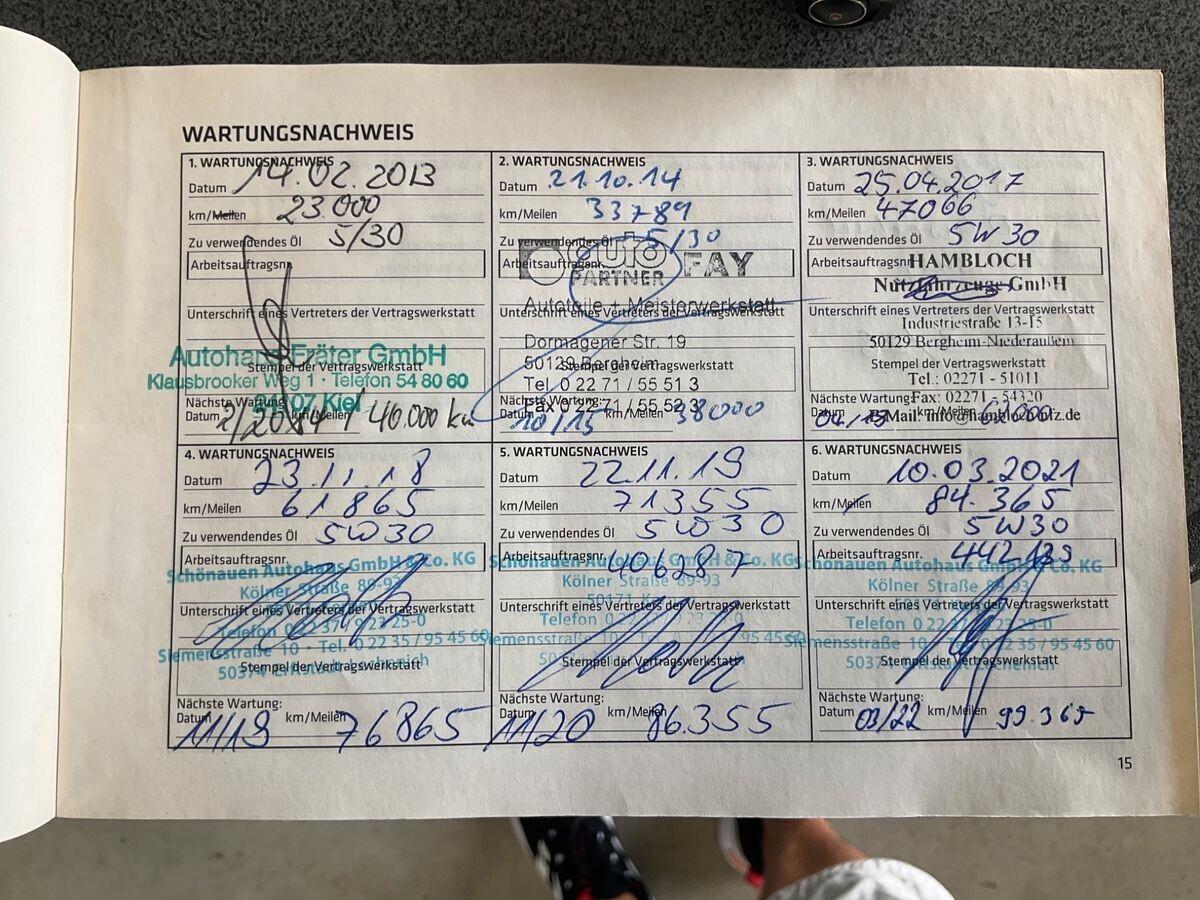 WARTUNGSNACHWEIS
1. WARTUNGSNACHWEIS
Datum 14.02.2013
km/Meilen 23.000
Zu verwendendes Öl 5/30
Arbeitsauftragsnr.
Unterschrift eines Vertreters der Vertragswerkstatt
Autohaus Fräter GmbH
Stempel der Vertragswerkstatt
Klausbrooker Weg 1 · Telefon 54 80 60
07 Kiel
Nächste Wartung:
Datum 2/2014 km/Meilen 40.000 km
2. WARTUNGSNACHWEIS
Datum 21.10.14
km/Meilen 33789
Zu verwendendes Öl 5/30
Arbeitsauftragsnr.
auto PARTNER FAY
Autoteile + Meisterwerkstatt
Unterschrift eines Vertreters der Vertragswerkstatt
Dormagener Str. 19
50129 Bergheim
Stempel der Vertragswerkstatt
Tel. 0 22 71 / 55 51 3
Fax 0 22 71 / 55 52 3
Nächste Wartung:
Datum 10/15 km/Meilen 38000
3. WARTUNGSNACHWEIS
Datum 25.04.2017
km/Meilen 47066
Zu verwendendes Öl 5W30
Arbeitsauftragsnr.
HAMBLOCH
Nutzfahrzeuge GmbH
Unterschrift eines Vertreters der Vertragswerkstatt
Industriestraße 13-15
50129 Bergheim-Niederaußem
Stempel der Vertragswerkstatt
Tel.: 02271 - 51011
Fax: 02271 - 54320
Nächste Wartung:
Datum km/Meilen
4. WARTUNGSNACHWEIS
Datum 23.11.18
km/Meilen 61865
Zu verwendendes Öl 5W30
Arbeitsauftragsnr.
Schönauen Autohaus GmbH & Co. KG
Kölner Straße 89-93
Unterschrift eines Vertreters der Vertragswerkstatt
Telefon 0 22 37 / 9 23 25-0
Siemensstraße 10 · Tel. 0 22 35 / 95 45 60
Stempel der Vertragswerkstatt
50374
Nächste Wartung:
Datum 11/19 km/Meilen 76865
5. WARTUNGSNACHWEIS
Datum 22.11.19
km/Meilen 71355
Zu verwendendes Öl 5W30
Arbeitsauftragsnr. 406287
Schönauen Autohaus GmbH & Co. KG
Kölner Straße 89-93
Unterschrift eines Vertreters der Vertragswerkstatt
Telefon
Siemensstraße
Stempel der Vertragswerkstatt
Nächste Wartung:
Datum 11/20 km/Meilen 86.355
6. WARTUNGSNACHWEIS
Datum 10.03.2021
km/Meilen 84.365
Zu verwendendes Öl 5W30
Arbeitsauftragsnr. 442139
Schönauen Autohaus GmbH & Co. KG
Kölner Straße 89-93
Unterschrift eines Vertreters der Vertragswerkstatt
Telefon
Siemensstraße 10
Stempel der Vertragswerkstatt
Nächste Wartung:
Datum 03/22 km/Meilen 99.365
15